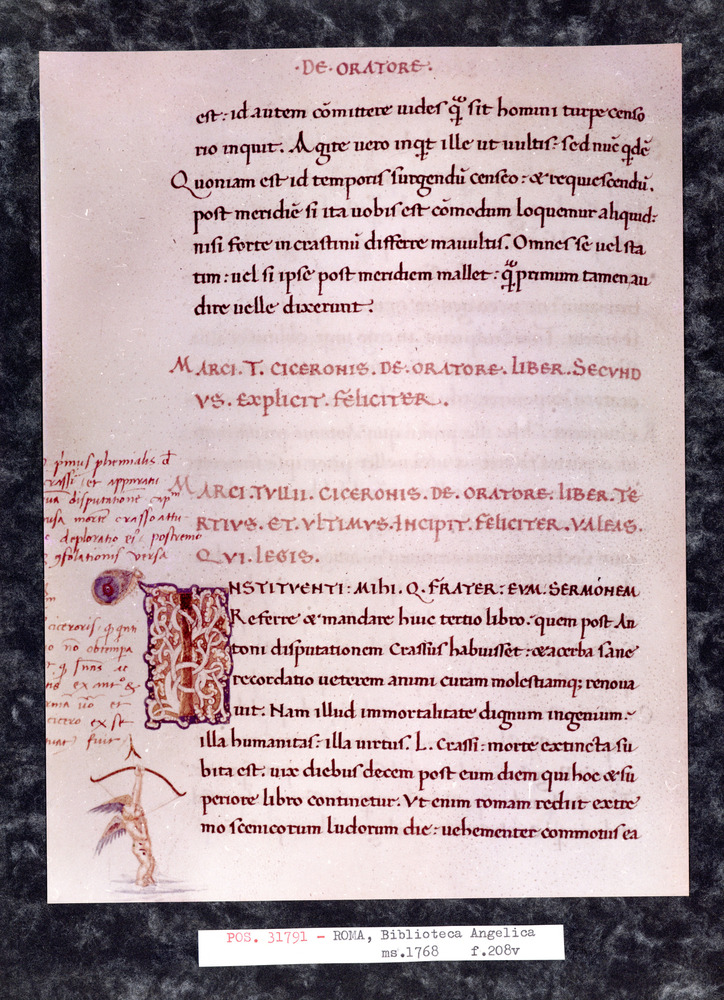 ·DE·ORATORE·
est: id autem cōmittere uides q̃ sit homini turpe censo
rio inquit. Agite uero inqt ille ut uultis: sed nūc qdē
Quoniam est id temporis surgendū censeo: & requiescendū.
post meridiē si ita uobis est cōmodum loquemur aliquid:
nisi forte in crastinū differre mauultis. Omnes se uel sta
tim: uel si ipse post meridiem mallet: q̃ primum tamen au
dire uelle dixerunt:
MARCI. T. CICERONIS. DE. ORATORE. LIBER. SECVND
VS. EXPLICIT. FELICITER.
MARCI. TVLII. CICERONIS. DE. ORATORE. LIBER. TE
RTIVS. ET. VLTIMVS. INCIPIT. FELICITER. VALEAS.
QVI. LEGIS.
INSTITVENTI: MIHI. Q. FRATER: EVM. SERMONEM
Referre & mandare huic tertio libro: quem post An
toni disputationem Crassus habuisset: & acerba sane
recordatio ueterem animi curam molestiamq; renoua
uit. Nam illud immortalitate dignum ingenium:
illa humanitas: illa uirtus. L. Crassi: morte extincta su
bita est: uix diebus decem post eum diem qui hoc & su
periore libro continetur. Vt enim romam rediit extre
mo scenicorum ludorum die: uehementer commotus ea
p̄mus phemialis
et apparatu
disputatione
morte crasso
deploratio ei postremo
9solationis uersa
ciceronis
nō obtempa
cicero ex se
fuit
POS. 31791 – ROMA, Biblioteca Angelica
ms.1768 f.208v